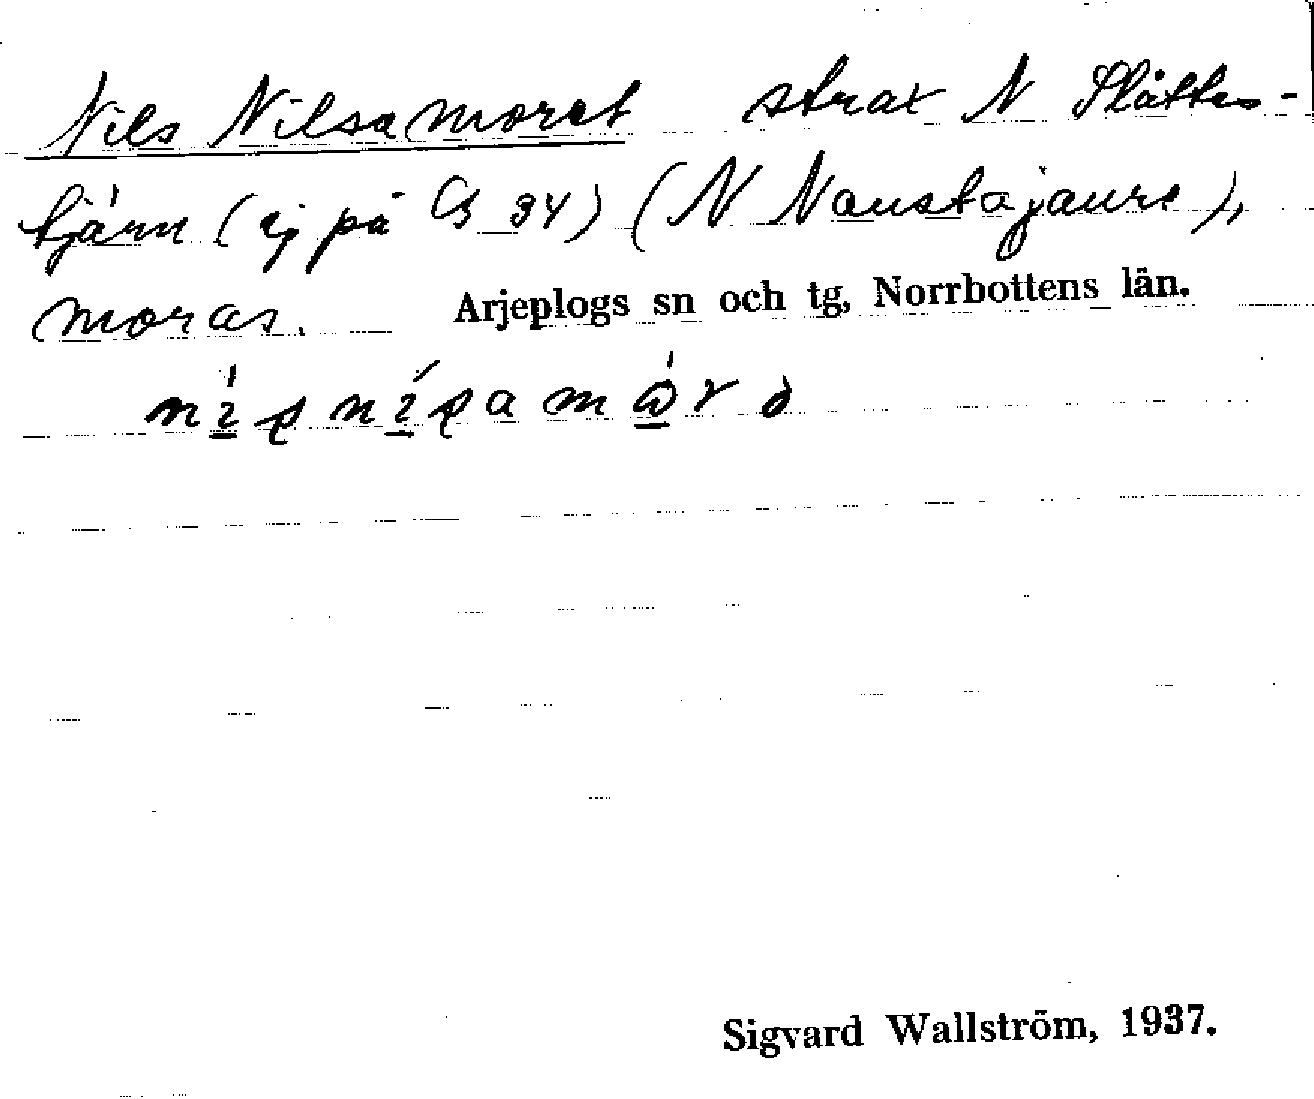 Nils Nilsamoret strax N Slåttes-
tjärn (ej på G 34) (N Naustajaure),
moras. Arjeplogs sn och tg, Norrbottens län.
Sigvard Wallström, 1937.